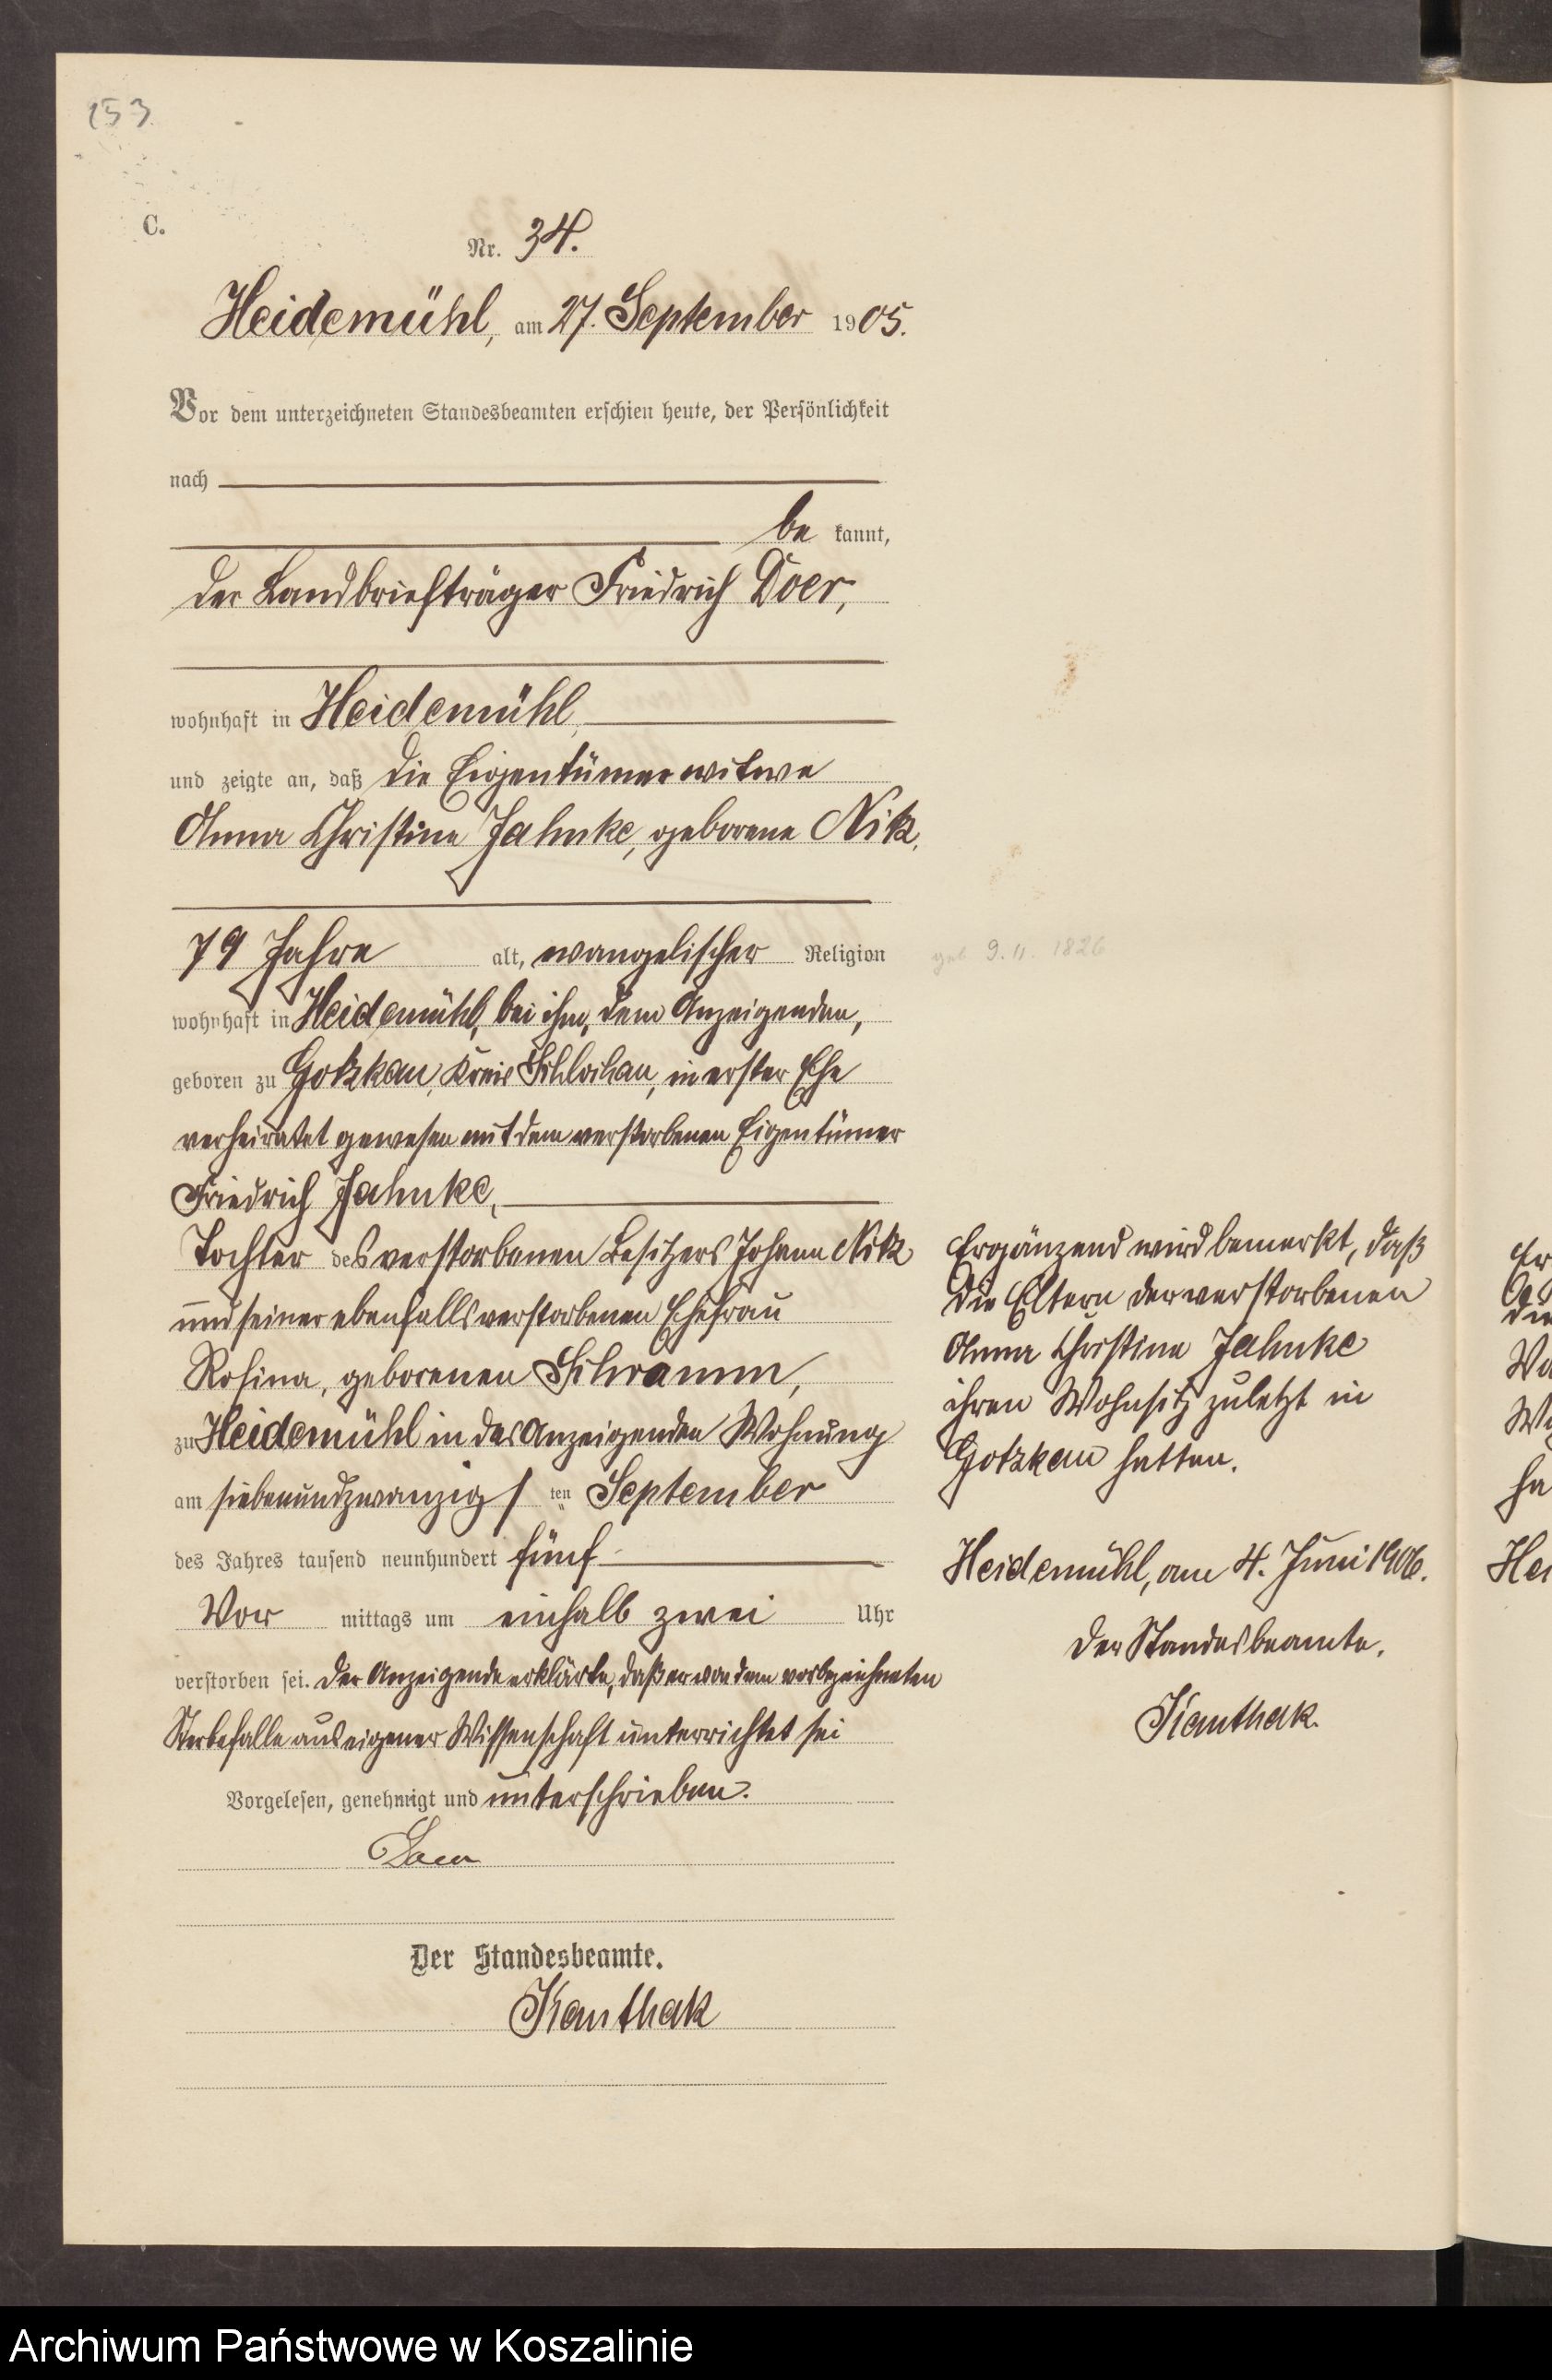 153
C.
Nr. 34.
Heidemühl, am 27. September 1905.
Vor dem unterzeichneten Standesbeamten erschien heute, der Persönlichkeit
nach
be kannt,
der Landbriefträger Friedrich Doer,
wohnhaft in Heidemühl,
und zeigte an, daß die Eigentümerwitwe
Anna Christine Jahnke, geborene Nitz,
79 Jahre alt, evangelischer Religion
geb. 9. 11. 1826
wohnhaft in Heidemühl, bei ihm, dem Anzeigenden,
geboren zu Gotzkau, Kreis Schlochau, in erster Ehe
verheiratet gewesen mit dem verstorbenen Eigentümer
Friedrich Jahnke,
Tochter des verstorbenen Besitzers Johann Nitz
und seiner ebenfalls verstorbenen Ehefrau
Rosina, geborenen Schramm,
zu Heidemühl in des Anzeigenden Wohnung
am siebenundzwanzigsten September
des Jahres tausend neunhundert fünf
Vor mittags um einhalb zwei Uhr
verstorben sei. Der Anzeigende erklärte, daß er von dem vorbezeichneten
Sterbefalle aus eigener Wissenschaft unterrichtet sei
Vorgelesen, genehmigt und unterschrieben.
Doer
Der Standesbeamte.
Kanthak
Ergänzend wird bemerkt, daß
die Eltern der verstorbenen
Anna Christine Jahnke
ihren Wohnsitz zuletzt in
Gotzkau hatten.
Heidemühl, am 4. Juni 1906.
Der Standesbeamte.
Kanthak.
Archiwum Państwowe w Koszalinie